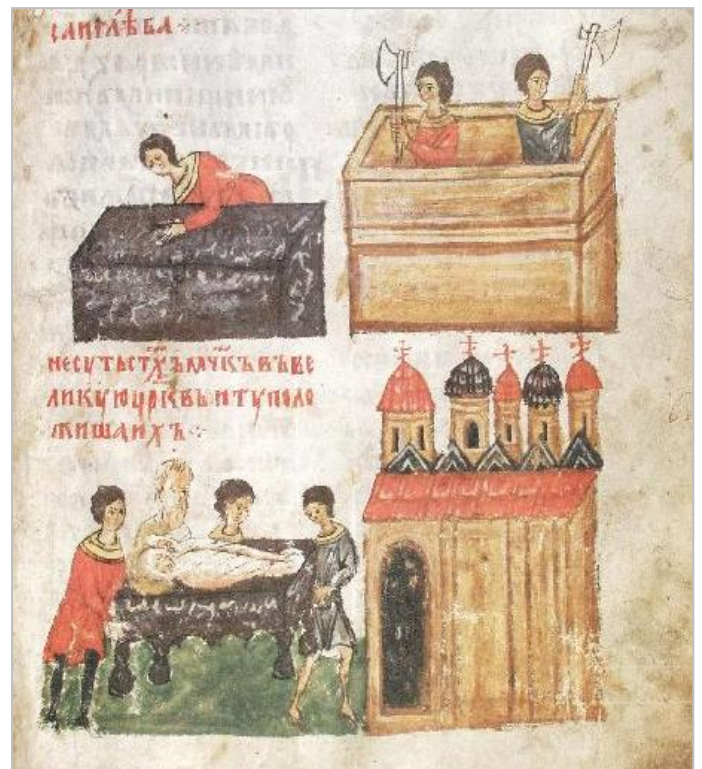 саиглѣба⁘
несутьстх҃ъмч҃къвъве
ликуюцрк҃вьитуполо
жишаихъ⁘